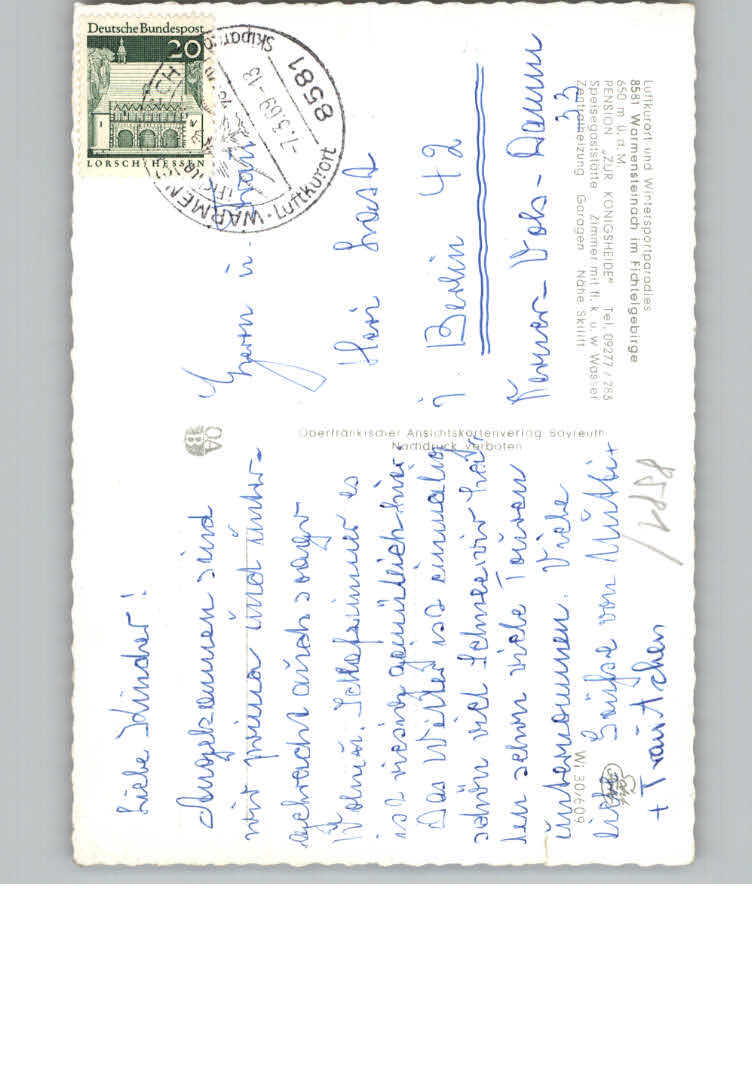 Luftkurort und Wintersportparadies
8581 Warmensteinach im Fichtelgebirge
650 m ü. d. M.
PENSION „ZUR KÖNIGSHEIDE" Tel. 09277 / 283
Speisegaststätte Zimmer mit fl. k. u. w Wasser
Zentralheizung Garagen Nähe Skilift
Liebe Kinder!
Angekommen sind
wir prima und unter-
gebracht auch sogar
Wohn u. Schlafzimmer es
ist riesig gemütlich hier.
Das Wetter ist einmalig
schön viel Schnee wir hat-
ten schon viele Touren
unternommen. Viele
liebe Grüße von Mutti +
+ Trautchen
Oberfränkischer Ansichtskartenverlag Bayreuth
Nachdruck verboten
OA
BV
Wi 30/609
8581/
Deutsche Bundespost
20
LORSCH/HESSEN
8581
-7.3.69-13
Luftkurort
Herrn u. Frau
Heri
1 Berlin 42
33